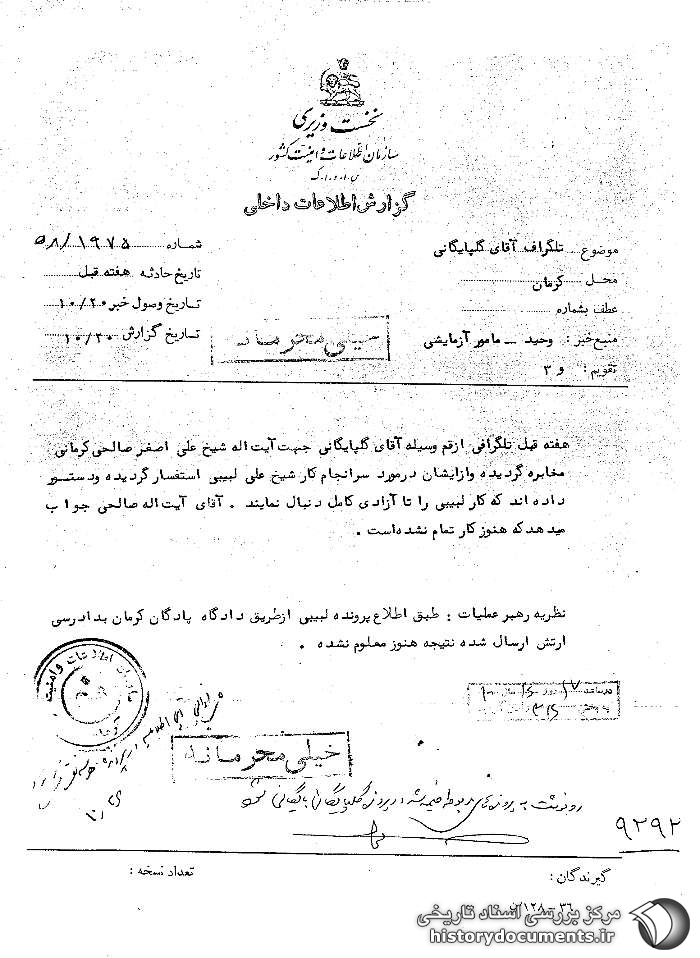 نخست وزیری
سازمان اطلاعات و امنیت کشور
س.ا.و.ا.ک
گزارش اطلاعات داخلی
موضوع تلگراف آقای گلپایگانی
محل کرمان
عطف بشماره
منبع خبر : وحید ــ مامور آزمایشی
تقویم : و ۳
شماره ۵۸/۱۹۷۵
تاریخ حادثه هفته قبل
تاریخ وصول خبر ۱۰/۲۰
تاریخ گزارش ۱۰/۲۰
خیلی محرمانه
هفته قبل تلگرافی ازقم وسیله آقای گلپایگانی جهت آیت اله شیخ علی اصغر صالحی کرمانی
مخابره گردیده وازایشان درمورد سرانجام کار شیخ علی لبیبی استفسار گردیده ودستور
داده اند که کار لبیبی را تا آزادی کامل دنبال نمایند . آقای آیت اله صالحی جواب
میدهد که هنوز کار تمام نشده است .
نظریه رهبر عملیات : طبق اطلاع پرونده لبیبی ازطریق دادگاه پادگان کرمان بدادرسی
ارتش ارسال شده نتیجه هنوز معلوم نشده .
سازمان اطلاعات و امنیت
خیلی محرمانه
رونوشت به پرونده های مربوطه ضمیمه شد
۹۲۹۲
گیرندگان :
تعداد نسخه :
۳۶ــ۱۲۸
مرکز بررسی اسناد تاریخی
historydocuments.ir